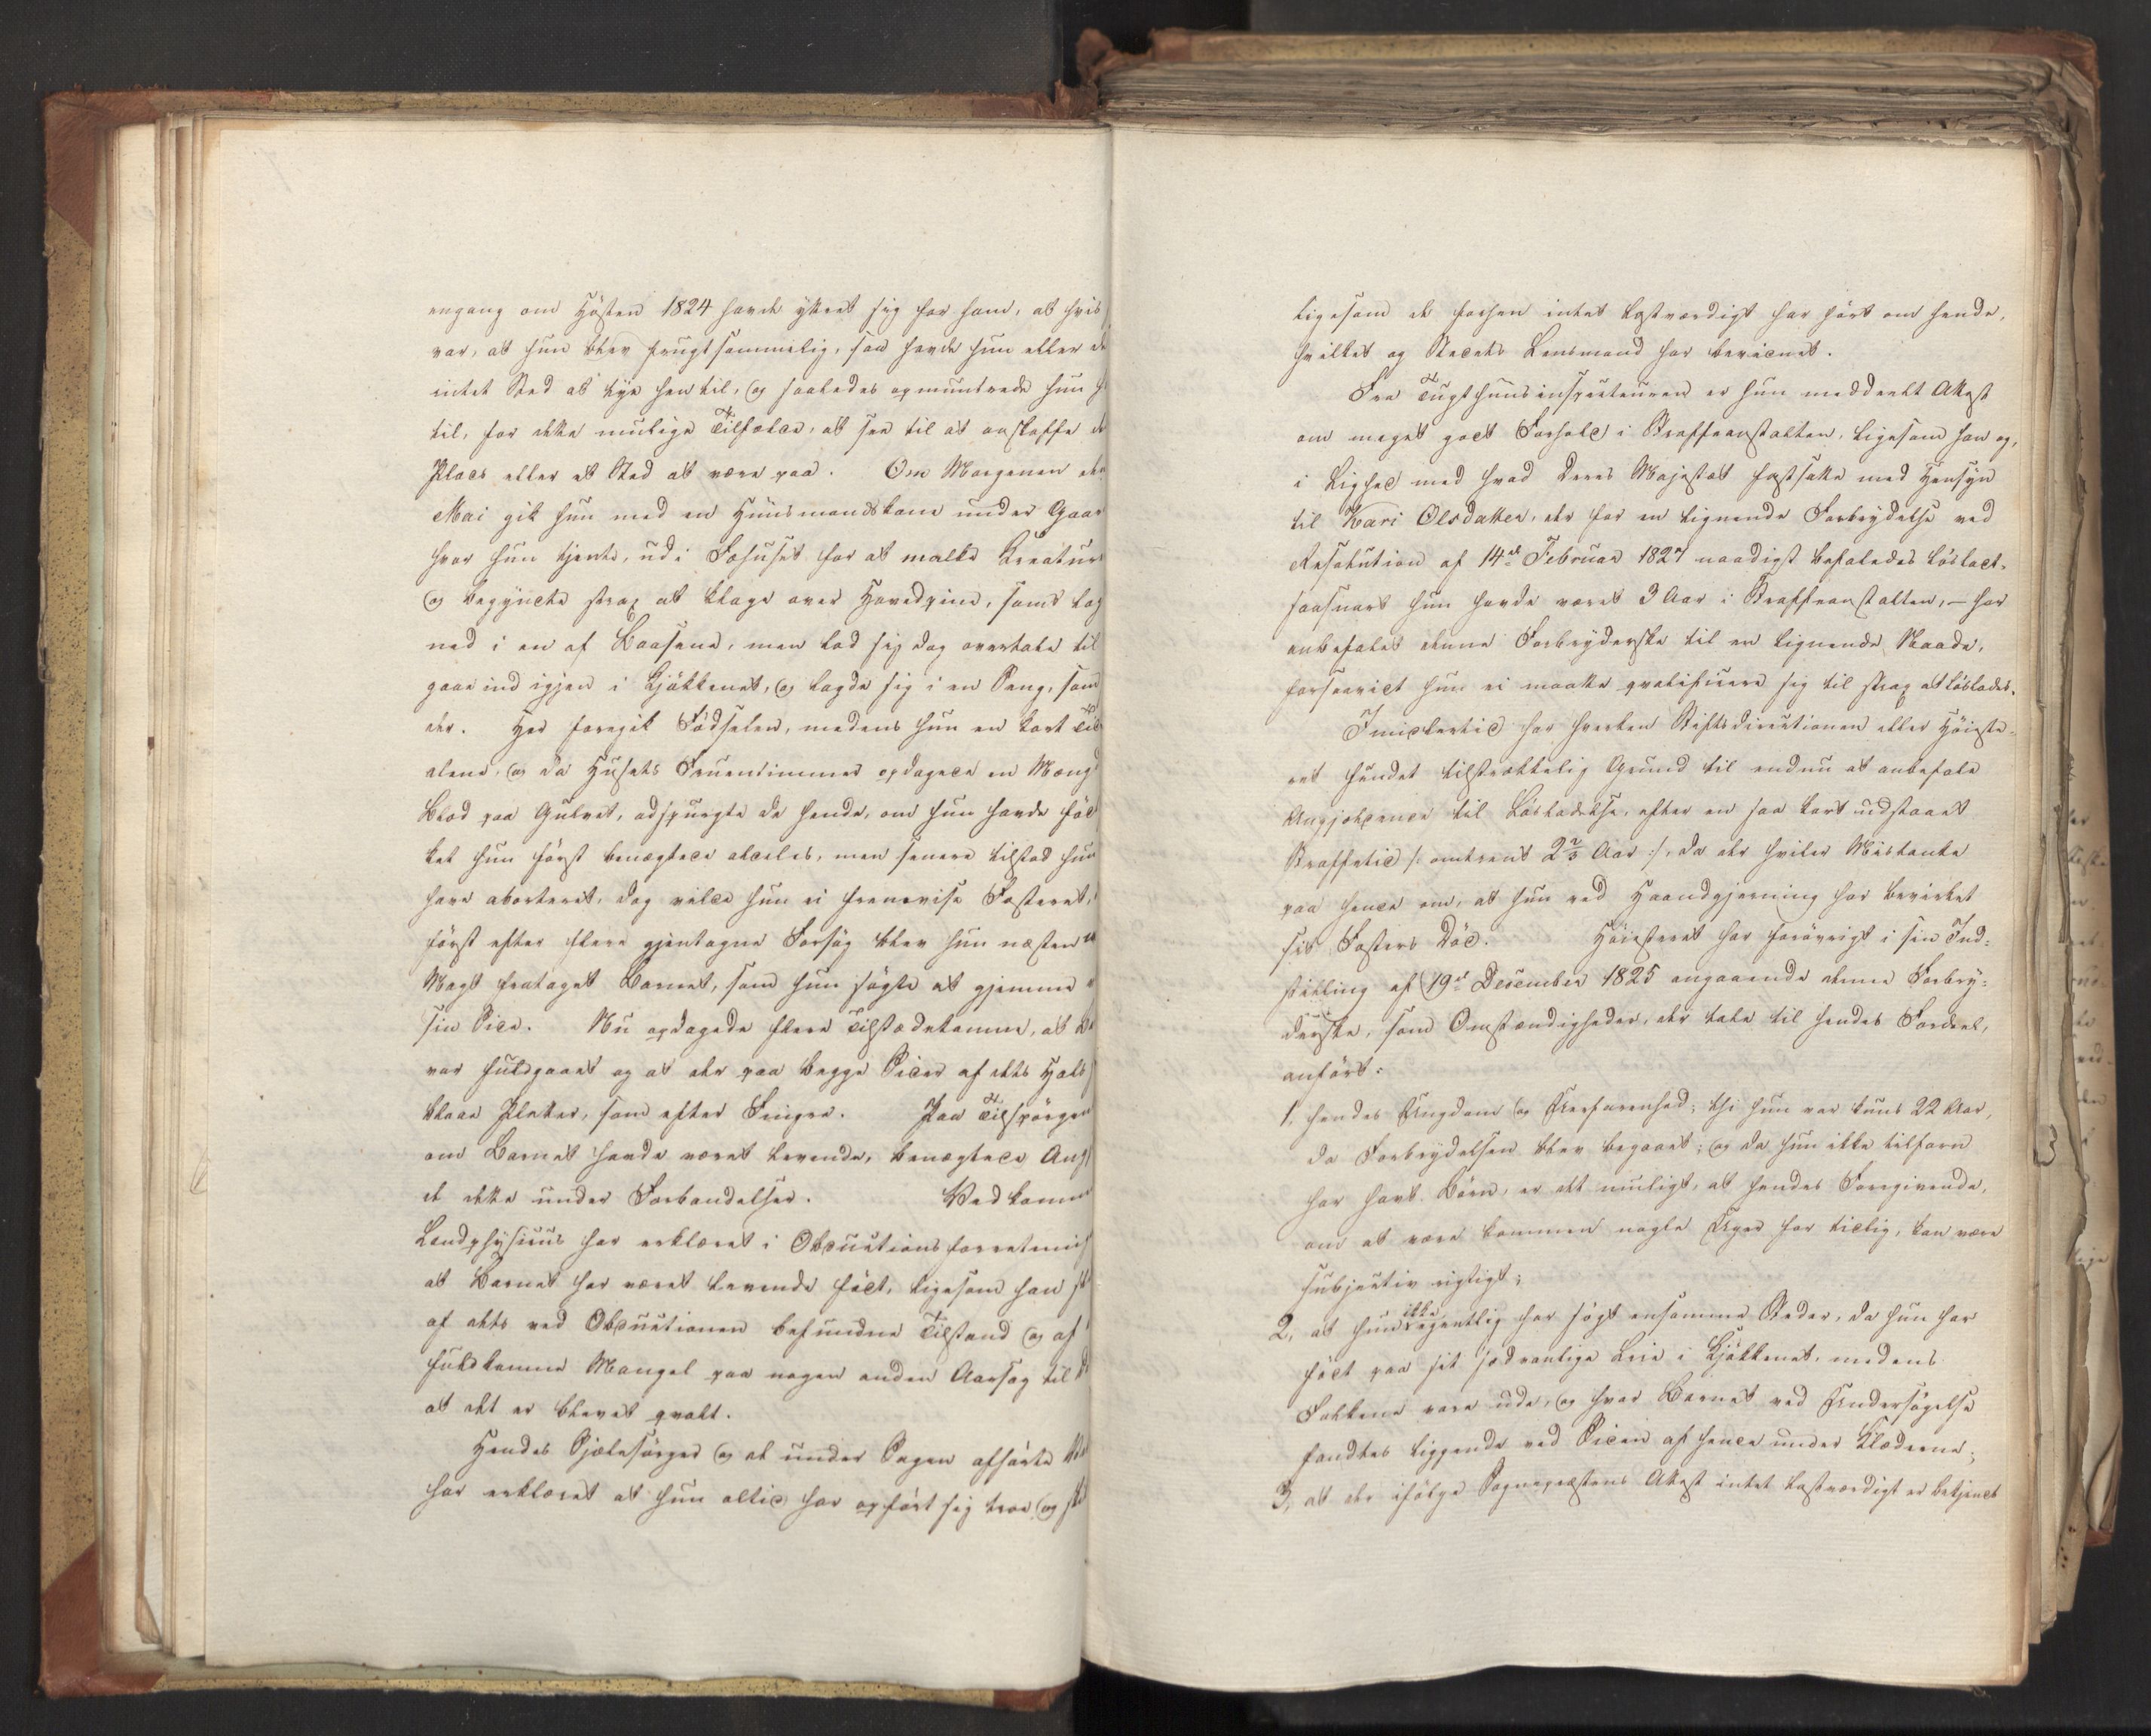 engang om Høsten 1824 havde yttret sig for ham, at hvis
var, at hun blev frugtsommelig, saa havde hun eller de
intet Sted at tye hen til, og saaledes opmuntrede hun h
til, for dette mulige Tilfælde, at see til at anskaffe de
Plads eller et Sted at være paa. Om Morgenen den
Mai gik hun med en Huusmandskone under Gaar
hvor hun tjente, ud i Fæhuset for at malke Kreatur
og begyndte strax at klage over Hovedpine, samt lag
ned i en af Baasene, men lod sig dog overtale til
gaae ind igjen i Kjøkkenet, og lagde sig i en Seng, som
der. Her foregik Fødselen, medens hun en kort Tid
alene, og da Husets Fruentimmer opdagede en Mæng
Blod paa Gulvet, adspurgte de hende, om hun havde fød
ket hun først benægtede aldeles, men senere tilstod hun
have aborteret, dog vilde hun ei fremvise Fosteret,
først efter flere gjentagne Forsøg blev hun næsten
Magt frataget Barnet, som hun søgte at gjemme
sin Side. Nu opdagede flere Tilstædekomne, at
var fuldgaaet og at der paa begge Sider af dets Hals
blaae Pletter, som efter Fingre. Paa Tilspørgen
om Barnet havde været levende, benægtede Ang
de dette under Forbandelser. Vedkomm
Landphysicus har erklæret i Obductionsforretning
at Barnet har været levende født, ligesom han
af dets ved Obductionen befundne Tilstand og af
fuldkomne Mangel paa nogen anden Aarsag til
at det er blevet qvalt.
Hendes Sjælesørger og et under Sagen afhørte
har erklæret at hun altid har opført sig troe og
ligesom de forhen intet lastværdigt har hørt om hende,
hvilket og Stedets Lensmand har bevidnet.
Fra Tugthuusinspecteuren er hun meddeelt Attest
om meget godt Forhold i Straffeanstalten, ligesom han og,
i Lighed med hvad Deres Majestæt fastsatte med Hensyn
til Kari Olsdatter, der for en lignende Forbrydelse ved
Resolution af 14de Februar 1827 naadigst befaledes løsladt,
saasnart hun havde været 3 Aar i Straffeanstalten, – har
anbefalet denne Forbryderske til en lignende Naade,
forsaavidt hun ei maatte qvalificere sig til strax at løslades.
Imidlertid har hverken Stiftsdirectionen eller Høieste-
ret fundet tilstrækkelig Grund til endnu at anbefale
Angjeldende til Løsladelse, efter en saa kort udstaaet
Straffetid /: omtrent 2 2/3 Aar :/, da der hviler Mistanke
paa hende om, at hun ved Haandgjerning har bevirket
sit Fosters Død. Høiesteret har forøvrigt i sin Ind-
stilling af 19de December 1825 angaaende denne Forbry-
derske, som Omstændigheder, der tale til hendes Fordeel,
anført:
1, hendes Ungdom og Uerfarenhed; thi hun var kuns 22 Aar,
da Forbrydelsen blev begaaet; og da hun ikke tilforn
har havt Børn, er det muligt, at hendes Foregivende,
om at være kommen nogle Uger for tidlig, kan være
subjectiv rigtigt;
2, at hun ikke egentlig har søgt ensomme Steder, da hun har
født paa sit sædvanlige Leie i Kjøkkenet, medens
Folkene vare ude, og hvor Barnet ved Undersøgelse
fandtes liggende ved Siden af hende under Klæderne;
3, at der ifølge Sognepræstens Attest intet lastværdigt er betjendt